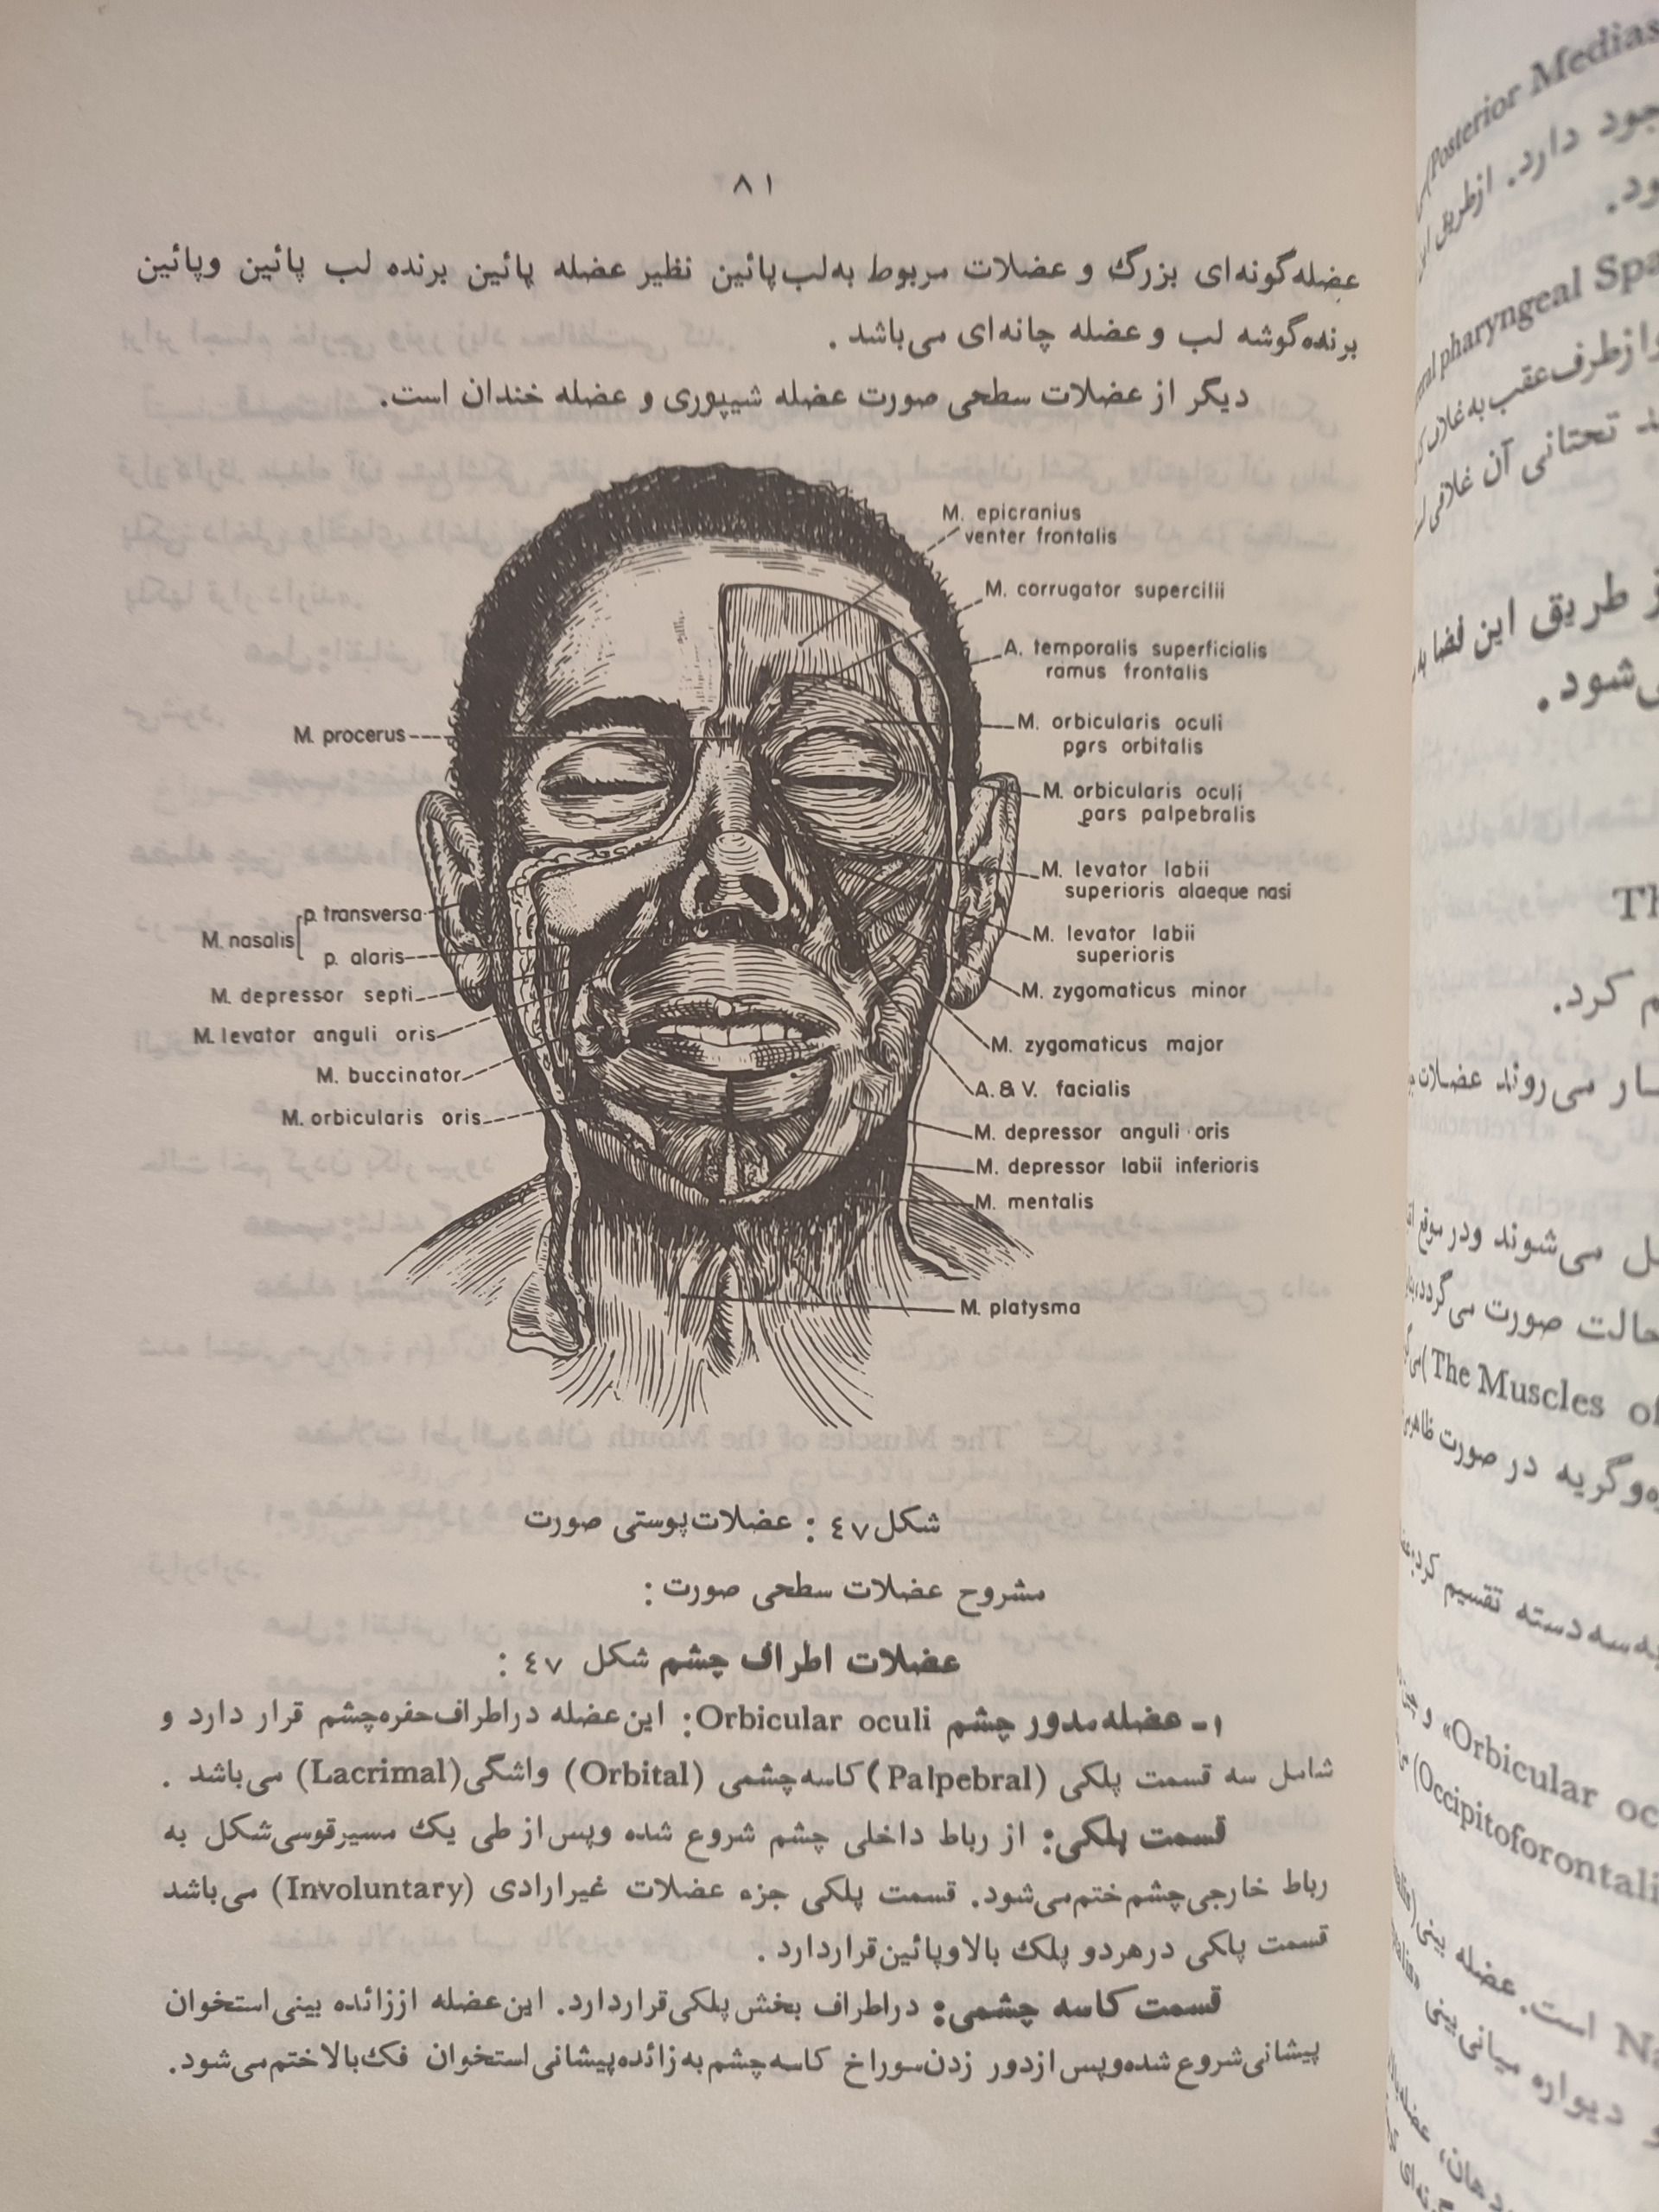 ۸۱
عضله‌گونه‌ای بزرگ و عضلات مربوط به‌لب‌پائین نظیر عضله پائین برنده لب پائین وپائین
برنده‌گوشه لب و عضله چانه‌ای می‌باشد .
دیگر از عضلات سطحی صورت عضله شیپوری و عضله خندان است.
M. epicranius
venter frontalis
M. corrugator supercilii
A. temporalis superficialis
ramus frontalis
M. orbicularis oculi
pars orbitalis
M. procerus
M. orbicularis oculi
pars palpebralis
M. levator labii
superioris alaeque nasi
M. nasalis
p. transversa
p. alaris
M. levator labii
superioris
M. depressor septi
M. zygomaticus minor
M. levator anguli oris
M. zygomaticus major
M. buccinator
A. & V. facialis
M. orbicularis oris
M. depressor anguli oris
M. depressor labii inferioris
M. mentalis
M. platysma
شکل ٤٧ : عضلات‌پوستی صورت
مشروح عضلات سطحی صورت :
عضلات اطراف چشم شکل ٤٧ :
۱ـ عضله‌مدور چشم Orbicular oculi: این‌عضله دراطراف‌حفره‌چشم قرار دارد و
شامل سه قسمت پلکی (Palpebral) کاسه‌چشمی (Orbital) واشگی(Lacrimal) می‌باشد .
قسمت پلکی: از رباط داخلی چشم شروع شده وپس‌از طی یک مسیرقوسی‌شکل به
رباط خارجی‌چشم‌ختم‌می‌شود. قسمت پلکی جزء عضلات غیرارادی (Involuntary) می‌باشد
قسمت پلکی درهردو پلک بالاوپائین‌قراردارد .
قسمت کاسه چشمی: دراطراف بخش‌پلکی‌قراردارد. این‌عضله اززائده بینی‌استخوان
پیشانی‌شروع شده‌وپس‌ازدور زدن‌سوراخ کاسه‌چشم‌به‌زائده‌پیشانی‌استخوان فک‌بالاختم‌می‌شود.
Posterior
جود دارد. ازطریق
ود.
pharyngeal
وازطرف‌عقب‌به‌غلاف
تحتانی آن غلافی
طریق این فضا به
شود .
م کرد.
می‌روند عضلات
می‌شوند ودرموقع
حالت صورت می‌گردد
(The Muscles of
وگریه در صورت
سه‌دسته تقسیم کرد
«Orbicular
(Occipitoforontali
است. عضله بینی
دیواره میانی‌بینی